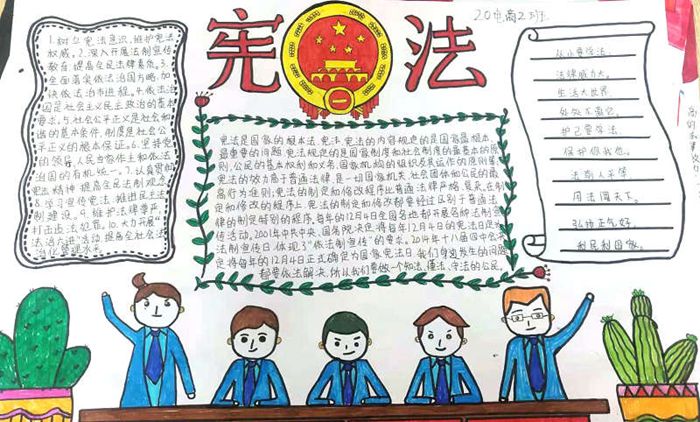 20电商2班
宪法
1.树立宪法意识,维护宪法
权威。2.深入开展法制宣传
教育提高全民法律素质。3.
全面落实依法治国方略,加
快依法治市进程。4.依法治
国是社会主义民主政治的基本
要求。5.社会公平正义是社会和
谐的基本条件,制度是社会公
平正义的根本保证。6.坚持党
的领导,人民当家作主和依法
治国的有机统一。7.认真贯彻
宪法精神,提高全民法制观念。
8.学习宣传宪法,推进民主法
制建设。9.维护法律尊严,
打击违法犯罪。10.大力开展"
法治六进"活动,提高全社会法
治化管理水平
宪法是国家的根本法,宪法,宪法的内容规定的是国家最根本,
最重要的问题,宪法规定的是国家制度和社会制度的最基本的原
则,公民的基本权利和义务,国家机构的组织及其运作的原则等,
宪法的效力高于普通法律,是一切国家机关,社会团体和公民的最
高行为准则;宪法的制定和修改程序比普通法律严格,复杂,在制
定和修改的程序上,宪法的制定和修改都要经过区别于普通法
律的制定特别的程序,每年的12月4日全国各地都开展各种法制宣
传活动,2001年中共中央、国务院决定将每年12月4日的宪法日定为
法制宣传日,体现了"依法制宣传"的要求。2014年十八届四中全会决
定将每年的12月4日正式确定为国家宪法日,我们身边发生的问题
都要依法解决,所以我们要做一个知法,懂法,守法的公民。
从小要学法,
法律威力大。
生活大世界,
处处不离它。
护己要学法,
保护你我他。
法前人平等,
用法闯天下。
弘扬正气好,
利民利国家。